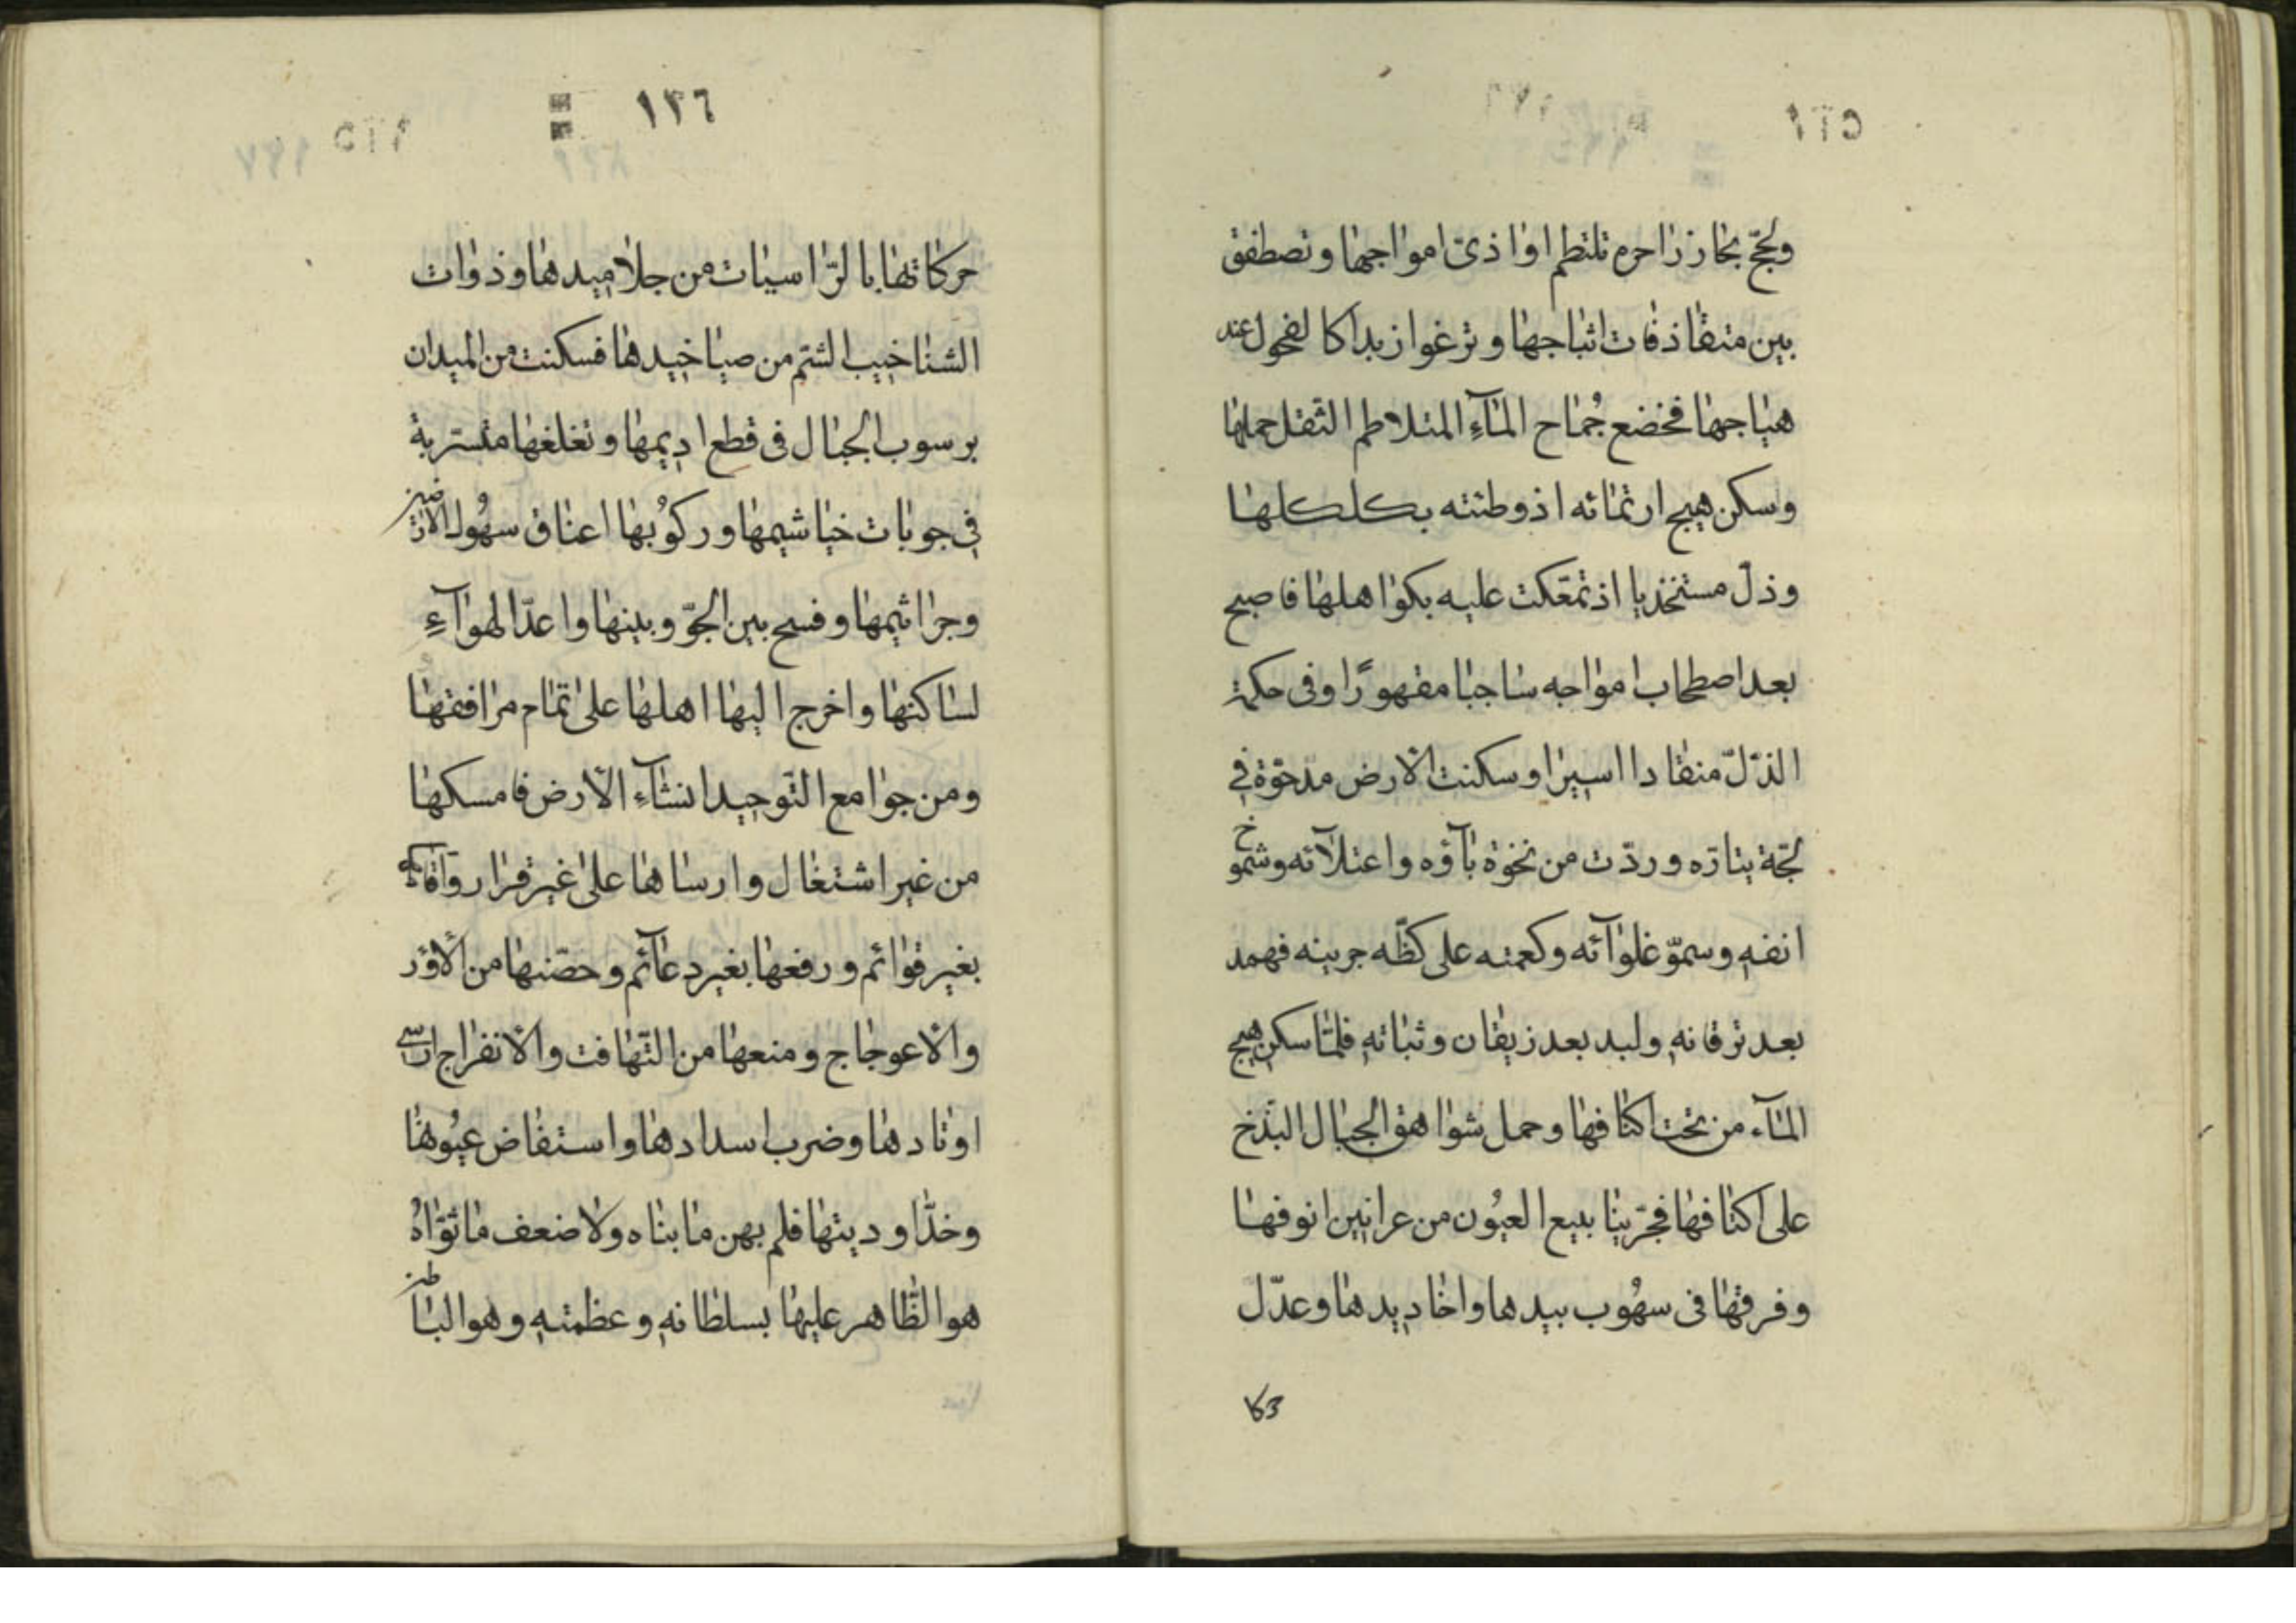 ولجج بحار زاخره تلتطم اواذى امواجها وتصطفق
بين متقاذفات اثباجها وترغوا زبدا كالفحول عند
هياجها فخضع جُماح المآءِ المتلاطم الثقل حملها
وسكن هيج ارتمائه اذ وطئته بكلكلها
وذلّ مستخذيا اذ تمعّكت عليه بكواهلها فاصبح
بعد اصطحاب امواجه ساجيا مقهورًا وفى حكمة
الذّلّ منقادا اسيرا وسكنت الارض مدحوّة فى
لجّة يتارّه وردّت من نخوة بآؤه واعتلآئه وشموخ
انفهِ وسموّ غلوآئه وكعمته على كظّه جرينه فهمد
بعد نزقانهِ ولبد بعد زيقان وثباتهِ فلمّا سكن هيج
المآء من تحت اكنافها وحمل شواهق الجبال البذّخ
على اكتافها فجّر ينابيع العيُون من عرانين انوفها
وفرقها فى سهُوب بيدها واخاديدها وعدّل
حركا
١٣٦
حركاتها بالرّاسيات من جلاميدها وذوات
الشناخيب الشم من صياخيدها فسكنت من الميدان
برسوب الجبال فى قطع اديمها وتغلغها متسربة
فى جوبات خياشيمها وركوُبها اعناق سهُول الارضين
وجراثيمها وفسح بين الجوّ وبينها واعدّ الهوآءِ
لساكنها واخرج اليها اهلها على تمام مرافقها
ومن جوامع التّوحيد انشآءِ الارض فامسكها
من غير اشتغال وارساها على غير قرار واقامها
بغير قوائم ورفعها بغير دعآئم وحصّنها من الاوَد
والاعوجاج ومنعها من التّهافت والانفراج ارسى
اوتادها وضرب اسدادها واستفاض عيُونها
وخدّ اوديتها فلم يهن ما بناه ولا ضعف ما قوّاهُ
هو الظّاهر عليها بسلطانهِ وعظمتهِ وهو الباطن